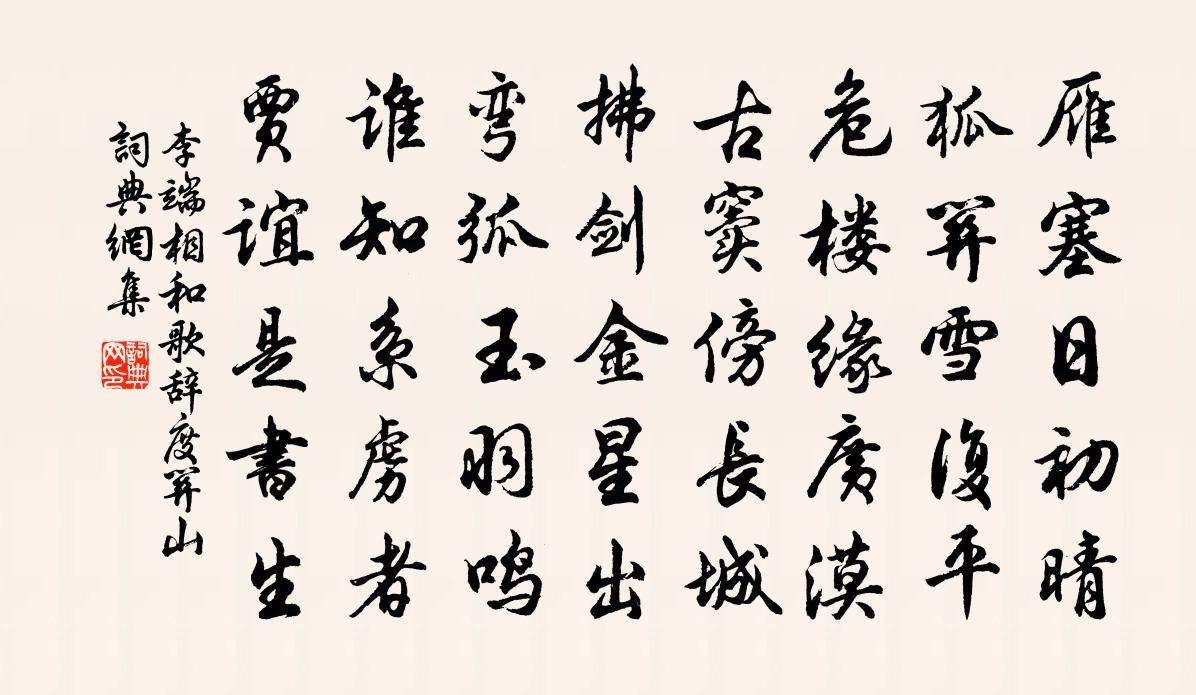 雁塞日初晴
狐關雪復平
危楼缘廣漠
古窦傍長城
拂剑金星出
弯弧玉羽鸣
谁知系虏者
贾谊是書生
李端相和歌辞度關山
詞典網集
詞典网印